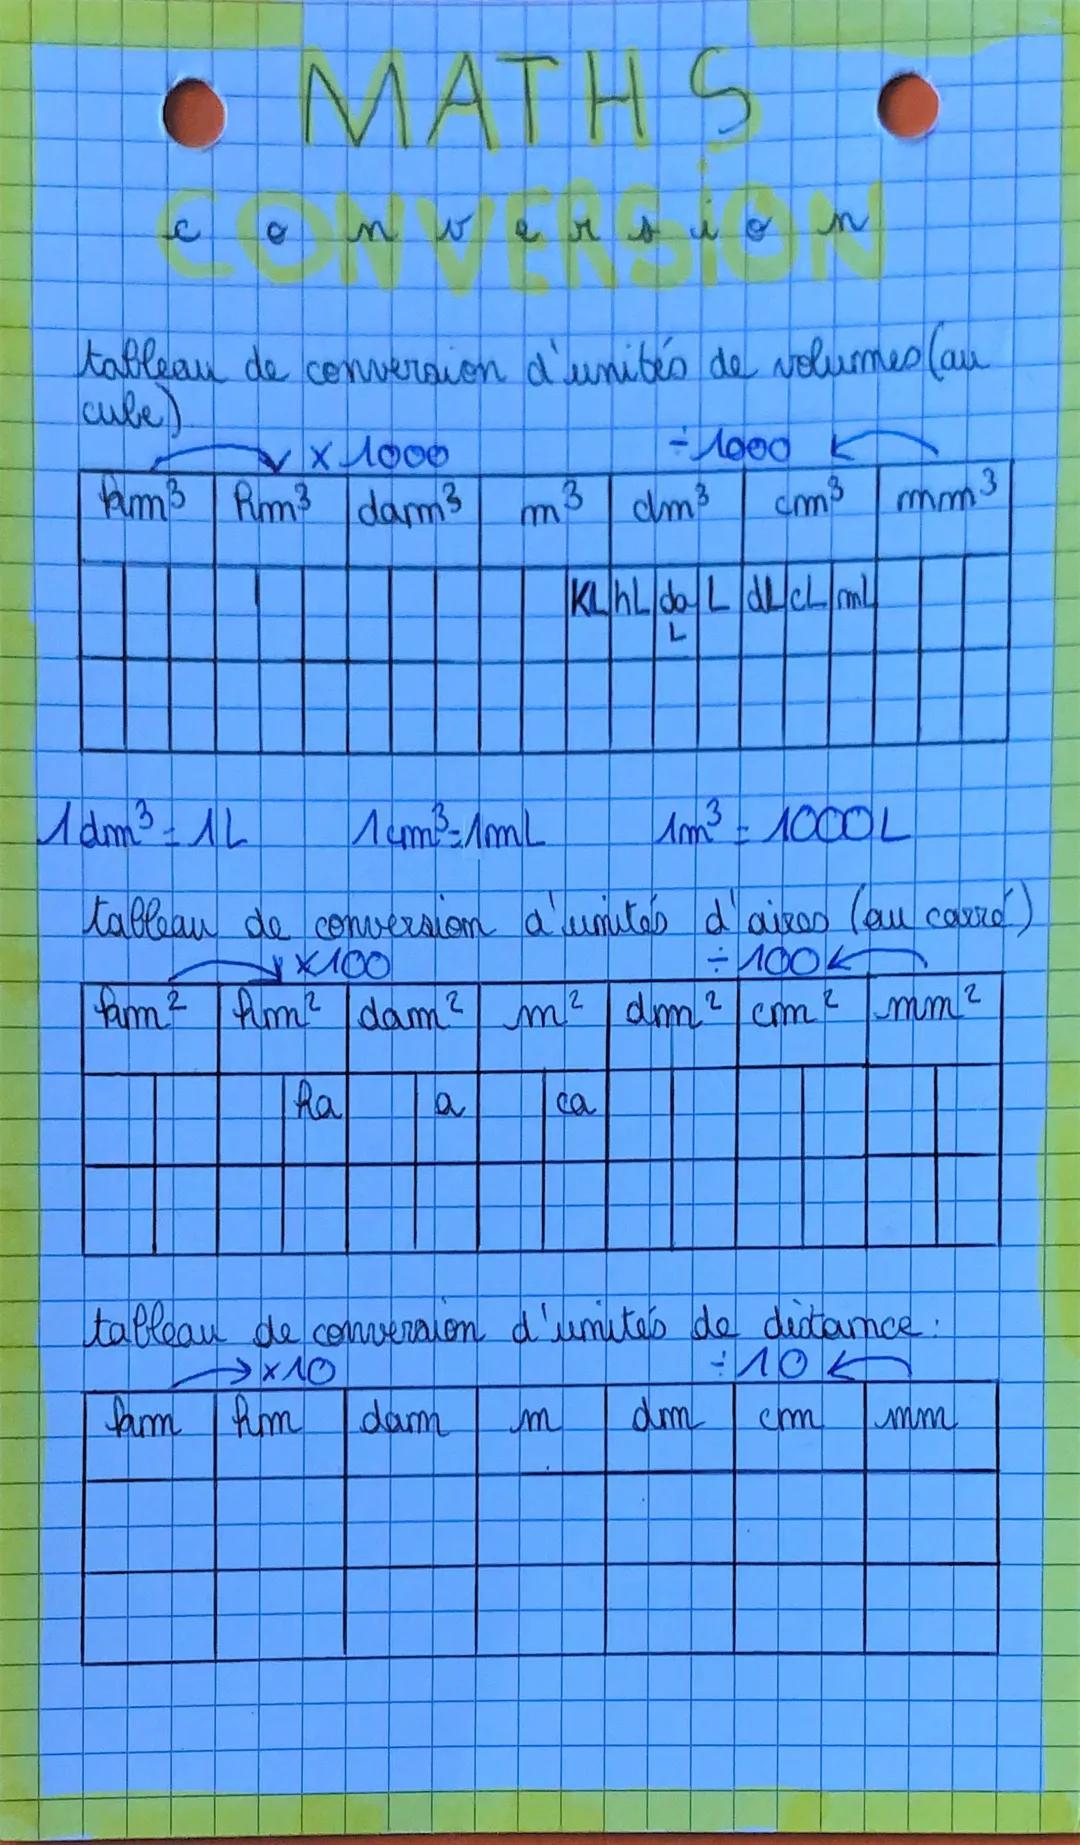 MATHS
conversion
CONVERSION
tableau de conversion d'unités de volumes (au
cube)
× 1000 ÷ 1000
km³ hm³ dam³ m³ dm³ cm³ mm³
KL hL da L dL cL mL
L
1dm³ = 1L 1cm³ = 1mL 1m³ = 1000L
tableau de conversion d'unités d'aires (au carré)
×100 ÷ 100
km² hm² dam² m² dm² cm² mm²
ha a ca
tableau de conversion d'unités de distance :
×10 ÷ 10
km hm dam m dm cm mm